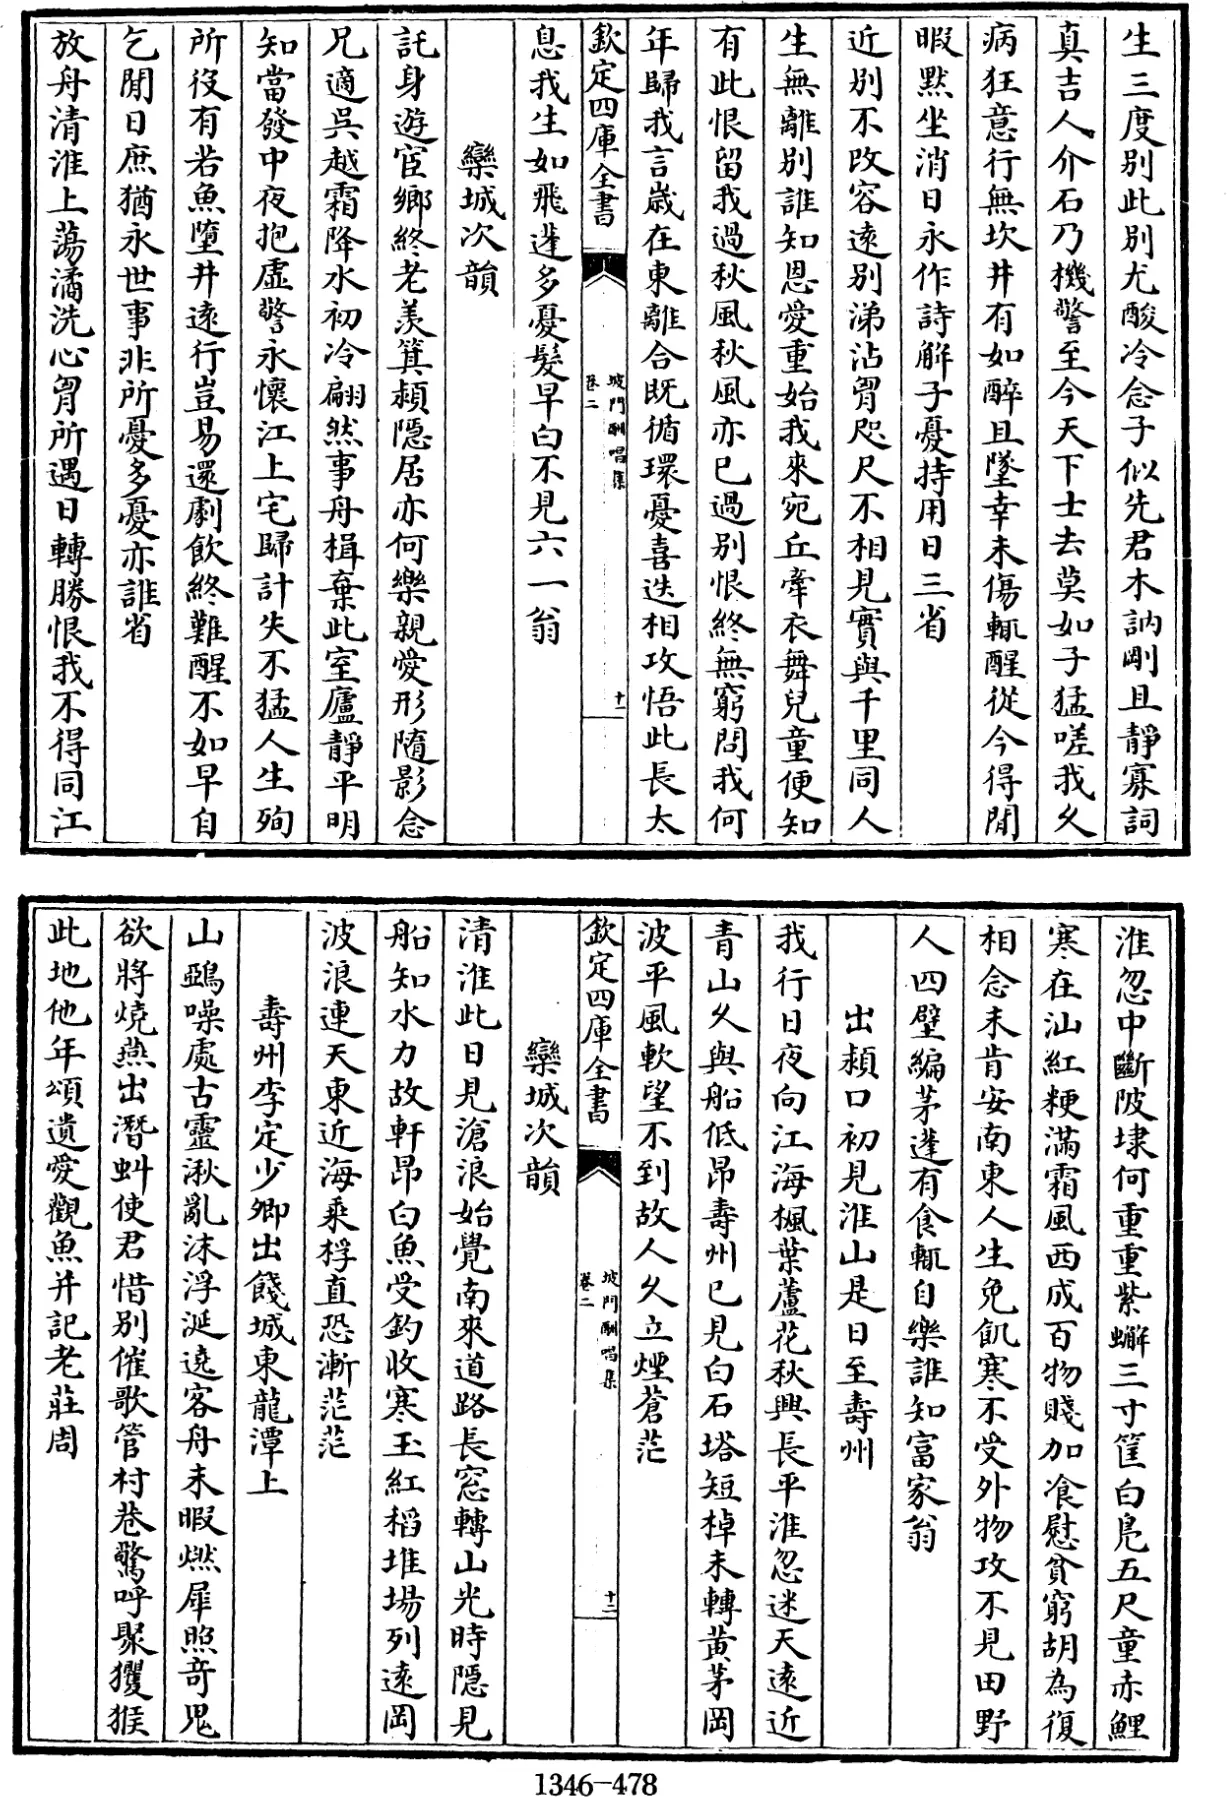 生三度別此別尤酸冷念子似先君木訥剛且靜寡詞
真吉人介石乃機警至今天下士去莫如子猛嗟我久
病狂意行無坎井有如醉且墜幸未傷輒醒從今得閒
暇黙坐消日永作詩解子憂持用日三省
近別不改容逺別涕沾胷咫尺不相見實與千里同人
生無離別誰知恩愛重始我來宛丘牽衣舞兒童便知
有此恨留我過秋風秋風亦已過別恨終無窮問我何
年歸我言歳在東離合既循環憂喜迭相攻悟此長太
欽定四庫全書
坡門酬唱集
卷二
十一
息我生如飛蓬多憂髮早白不見六一翁
欒城次韻
託身遊宦鄉終老羨箕潁隠居亦何樂親愛形隨影念
兄適吳越霜降水初冷翩然事舟楫棄此室廬靜平明
知當發中夜抱虚警永懷江上宅歸計失不猛人生殉
所役有若魚墮井逺行豈易還劇飲終難醒不如早自
乞閒日庶猶永世事非所憂多憂亦誰省
放舟清淮上蕩潏洗心胷所遇日轉勝恨我不得同江
淮忽中斷陂埭何重重紫蠏三寸筐白鳬五尺童赤鯉
寒在汕紅粳滿霜風西成百物賤加飡慰貧窮胡為復
相念未肯安南東人生免飢寒不受外物攻不見田野
人四壁編茅蓬有食輒自樂誰知富家翁
出潁口初見淮山是日至壽州
我行日夜向江海楓葉蘆花秋興長平淮忽迷天逺近
青山久與船低昂壽州已見白石塔短棹未轉黄茅岡
波平風軟望不到故人久立煙蒼茫
欽定四庫全書
坡門酬唱集
卷二
十二
欒城次韻
清淮此日見滄浪始覺南來道路長窓轉山光時隠見
船知水力故軒昂白魚受釣收寒玉紅稻堆場列逺岡
波浪連天東近海乘桴直恐漸茫茫
壽州李定少卿出餞城東龍潭上
山鵶噪處古靈湫亂沫浮涎遶客舟未暇燃犀照竒鬼
欲將燒燕出潛虯使君惜別催歌管村巷驚呼聚玃猴
此地他年頌遺愛觀魚并記老莊周
1346-478